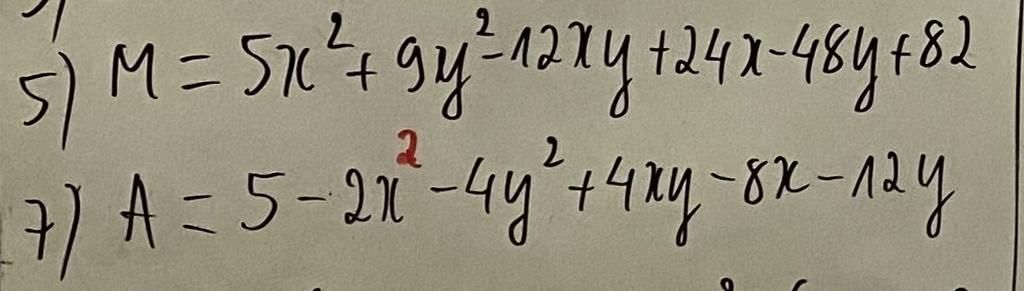 5) M = 5x² + 9y² - 12xy + 24x - 48y + 82
7) A = 5 - 2x² - 4y² + 4xy - 8x - 12y